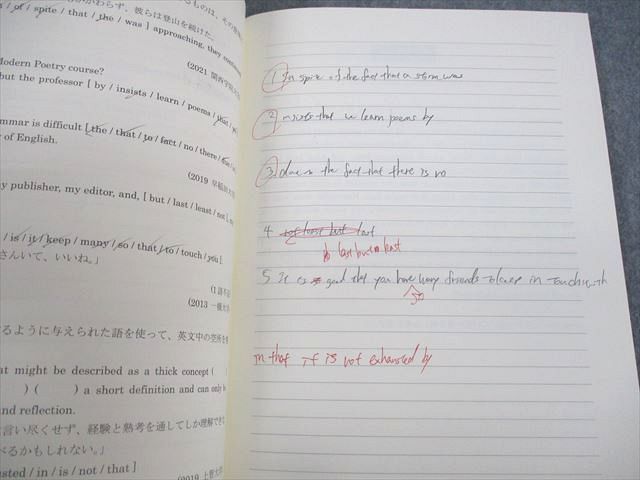 るものは、その
かわらず、彼らは登山を続けた。
of / spite / that / the / was ] approaching, they
(2021 関西学院
Modern Poetry course?
but the professor [ by / insists / learn / poems / that /
mmar is difficult [ the / that / to / fact / no / there /
of English.
(2019 早稲田
my publisher, my editor, and, [ but / last / least / not ],
/ is / it / keep / many / so / that / to / touch / you ]
さんいて、いいね。」
(1語不
(2013 一橋大
るように与えられた語を使って、英文中の空所を
at might be described as a thick concept (
) ( ) a short definition and can only
and reflection.
言い尽くせず、経験と熟考を通してしか理解でき
べるかもしれない。」
usted / in / is / not / that ]
(2019 上智大
1 In spite of the fact that a storm was
2 insists that we learn poems by
3 due to the fact that there is no
4 not least but last
last but not least
5 It is good that you have many friends to keep in touch with
so
in that it is not exhausted by